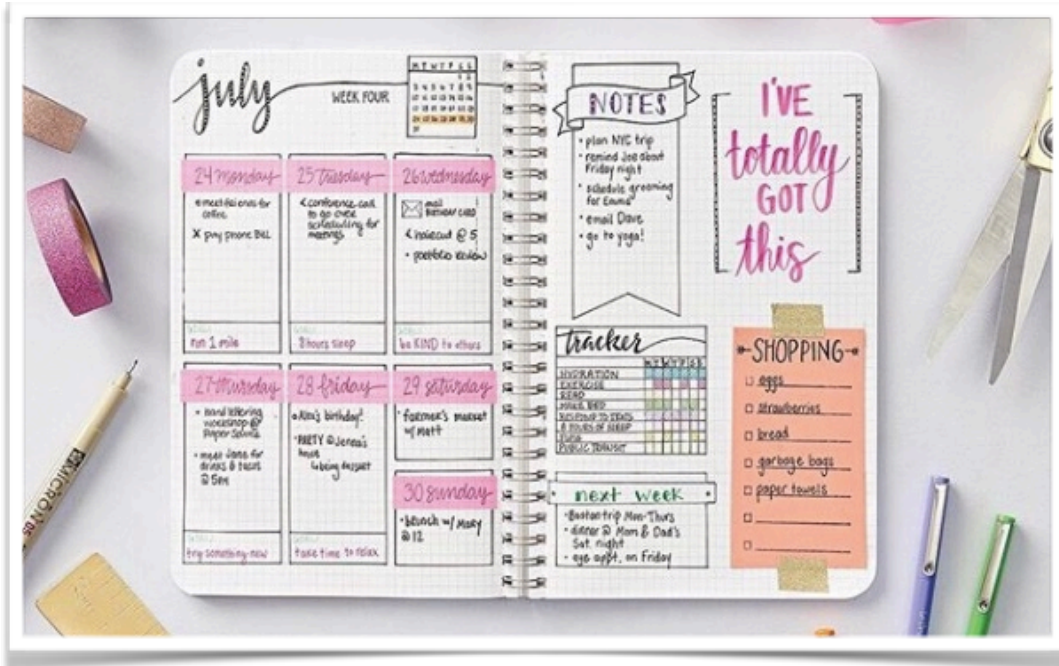 july
WEEK FOUR
M T W T F S S
24 monday
meet friends for
coffee
X pay phone BILL
run 1 mile
25 tuesday
< conference call
to go over
scheduling for
meetings
8 hours sleep
26 wednesday
mail
BIRTHDAY CARD
< haircut @ 5
• portfolio review
be KIND to others
27 thursday
• hand lettering
workshop @
Paper Source
• meet Jane for
drinks & tacos
@ 5pm
try something new
28 friday
birthday!
PARTY @ Jenna's
house
↳ bring dessert
take time to relax
29 saturday
• farmer's market
w/ Matt
30 sunday
• brunch w/ Mary
@ 12
NOTES
• plan NYC trip
• remind Joe about
Friday night
• schedule grooming
for Emma
• email Dave
• go to yoga!
I'VE
totally
GOT
this
tracker
M T W T F S S
HYDRATION
EXERCISE
READ
MAKE BED
RESPOND TO TEXTS
8 HOURS OF SLEEP
PUBLIC TRANSIT
next week
• Boston trip Mon-Thurs
• dinner @ Mom & Dad's
Sat. night
• eye appt. on Friday
SHOPPING
eggs
strawberries
bread
garbage bags
paper towels
MICRON 05